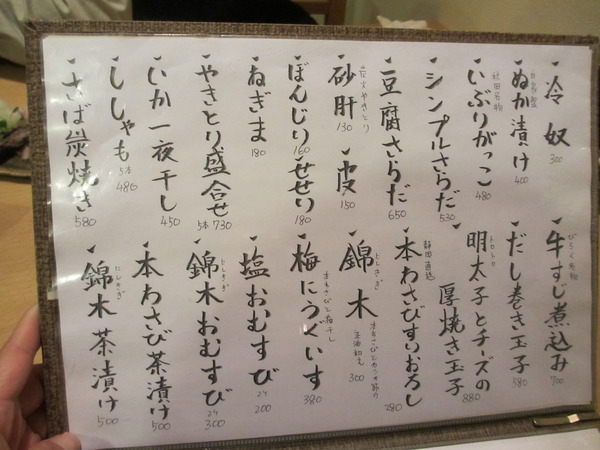 冷奴 300
自家製
ぬか漬け 400
秋田名物
いぶりがっこ 480
シンプルさらだ 530
豆腐さらだ 650
炭火やきとり
砂肝 130
皮 150
ぼんじり 160
せせり 180
ねぎま 180
やきとり盛合せ 5本 730
いか一夜干し 450
ししゃも 5本 480
さば炭焼き 580
牛すじ煮込み 700
だし巻き玉子 580
トロトロ
明太子とチーズの
厚焼き玉子 880
静岡直送
本わさびすりおろし 280
にしきぎ
錦木 300
本わさびとかつお節の
醤油和え
梅にうぐいす 380
本わさびと梅干し
塩おむすび 2ケ 200
にしきぎ
錦木おむすび 2ケ 300
本わさび茶漬け 500
にしきぎ
錦木茶漬け 500